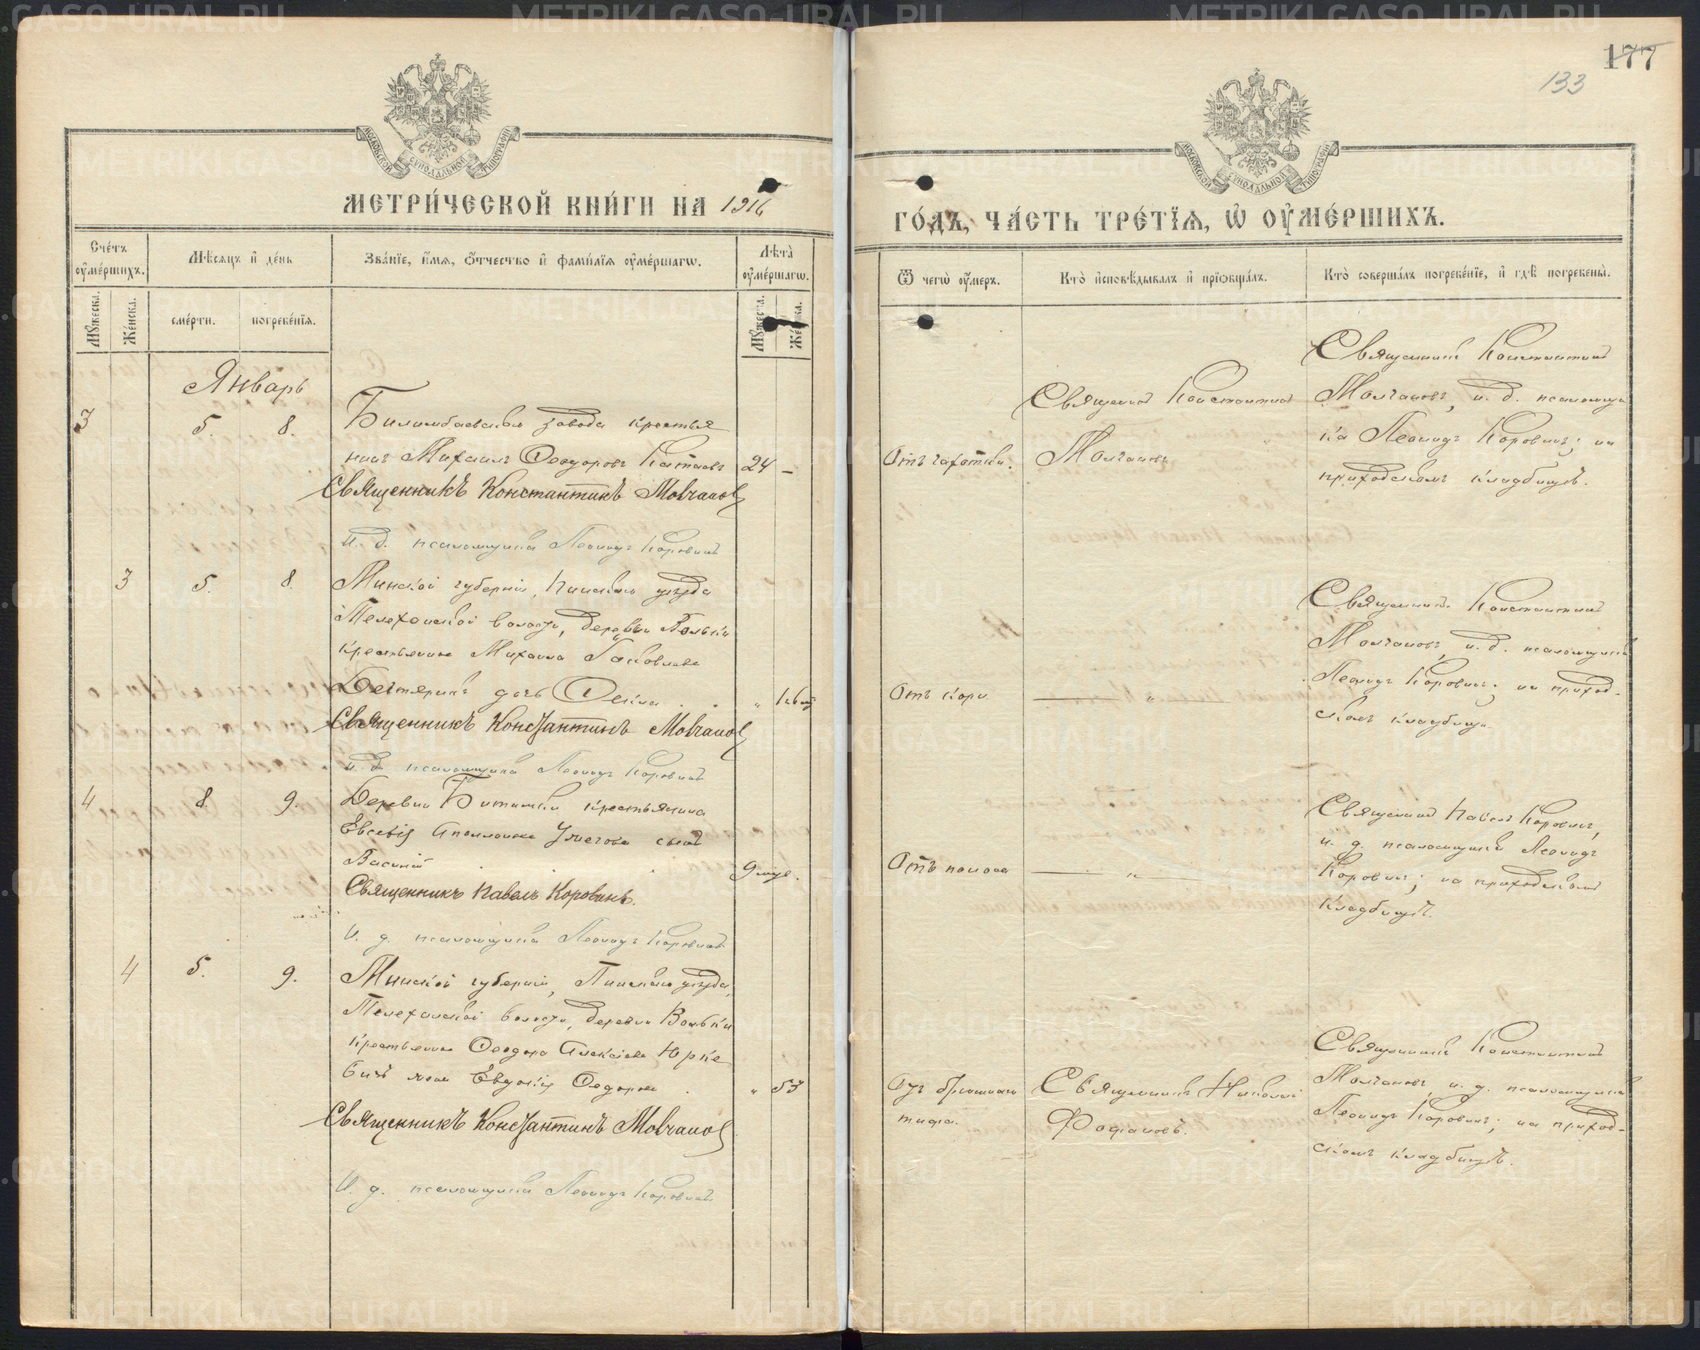 177
133
МОСКОВСКОЙ СѴНОДАЛЬНОЙ ТИПОГРАФІИ
МОСКОВСКОЙ СѴНОДАЛЬНОЙ ТИПОГРАФІИ
МЕТРИ́ЧЕСКОЙ КНИ́ГИ НА 1916
ГО́ДЪ, ЧА́СТЬ ТРЕ́ТІѦ, Ѡ҆ ОУ҆МЕ́РШИХЪ.
Сче́тъ оу҆ме́ршихъ.
Мѣ́сѧцъ и҆ де́нь
Зва́нїе, и҆́мѧ, ѻ҆́тчество и҆ фами́лїѧ оу҆ме́ршагѡ.
Лѣ̑та̀ оу҆ме́ршагѡ.
Ѿ чегѡ̀ оу҆́меръ.
Кто̀ и҆сповѣ́дывалъ и҆ прїѡбща́лъ.
Кто̀ соверша́лъ погребе́нїе, и҆ гдѣ̀ погребены̀.
Мꙋ́жеска.
Же́нска.
сме́рти.
погребе́нїѧ.
Мꙋ́жеска.
Же́нска.
Январь
3 5. 8.
Билимбаевскаго завода крестья
нинъ Михаилъ Ѳеодоровъ 24 –
Священникъ Константинъ Мовчановъ
И. д. псаломщика Леонидъ Коровинъ
Отъ чахотки.
Священникъ Константинъ
Молчановъ
Священникъ Константинъ
Молчановъ, и. д. псаломщи
ка Леонидъ Коровинъ; на
приходскомъ кладбищѣ.
3 5. 8
Минской губерніи, Пинскаго уѣзда
Телеханской волости, деревни Вольки
крестьянина Михаила Яковлева
дочь Ѳекла
Священникъ Константинъ Мовчановъ
и. д. псаломщика Леонидъ Коровинъ
Отъ кори
Священникъ Константинъ
Молчановъ, и. д. псаломщика
Леонидъ Коровинъ; на приход-
скомъ кладбищѣ.
4 8 9.
Деревни Битимки крестьянина
Евсевія Аполлонова сынъ
Василій 9 мѣс.
Священникъ Павелъ Коровинъ.
И. д. псаломщика Леонидъ Коровинъ
Отъ поноса
Священникъ Павелъ Коровинъ,
и. д. псаломщика Леонидъ
Коровинъ; на приходскомъ
кладбищѣ.
4 5. 9.
Минской губерніи, Пинскаго уѣзда,
Телеханской волости, деревни Вольки
крестьянина Ѳеодора Алексѣева Юрке
вичъ жена Евдокія Ѳедорова „ 53
Священникъ Константинъ Мовчановъ
И. д. псаломщика Леонидъ Коровинъ
Отъ брюшного
тифа.
Священникъ Николай
Фофановъ.
Священникъ Константинъ
Молчановъ, и. д. псаломщика
Леонидъ Коровинъ; на приход-
скомъ кладбищѣ.
METRIKI.GASO-URAL.RU